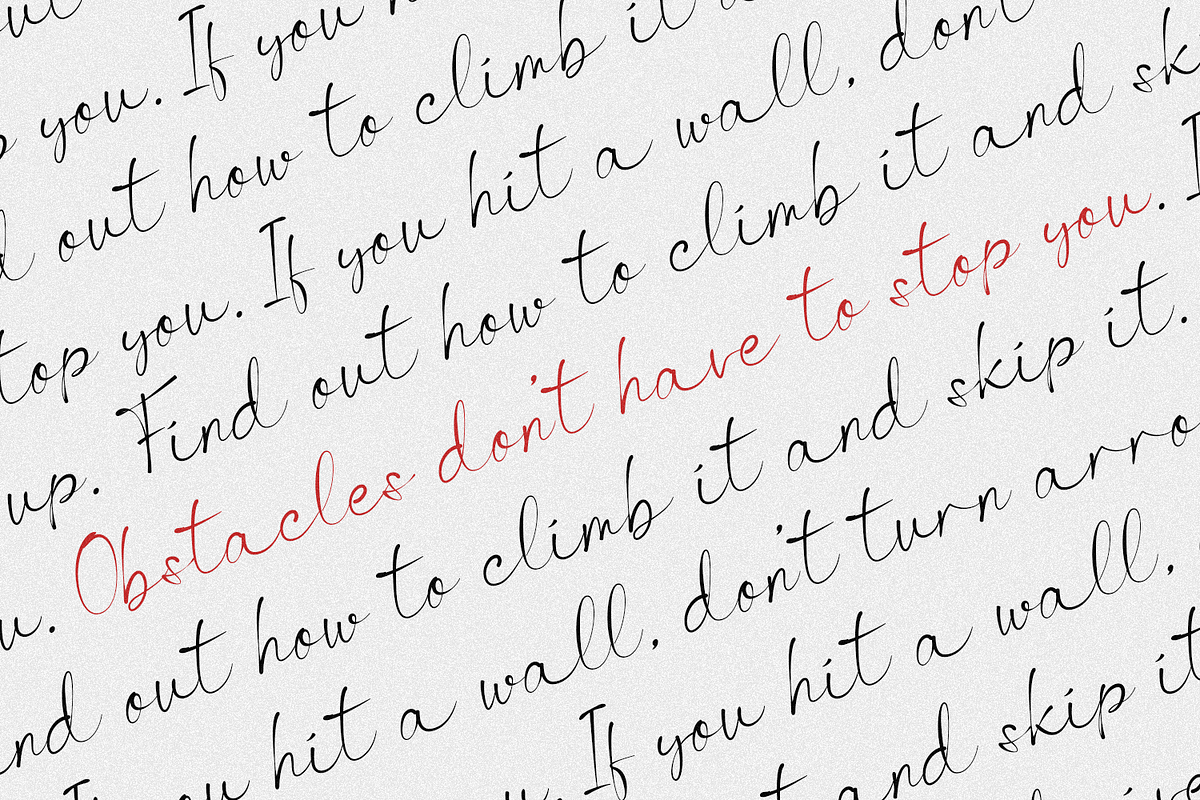 out
you. If you
out how to climb it
you. If you hit a wall, don't
top you. Find out how to climb it and
up. Obstacles don't have to stop you.
out how to climb it and skip it.
If you hit a wall, don't turn
If you hit a wall,
and skip it